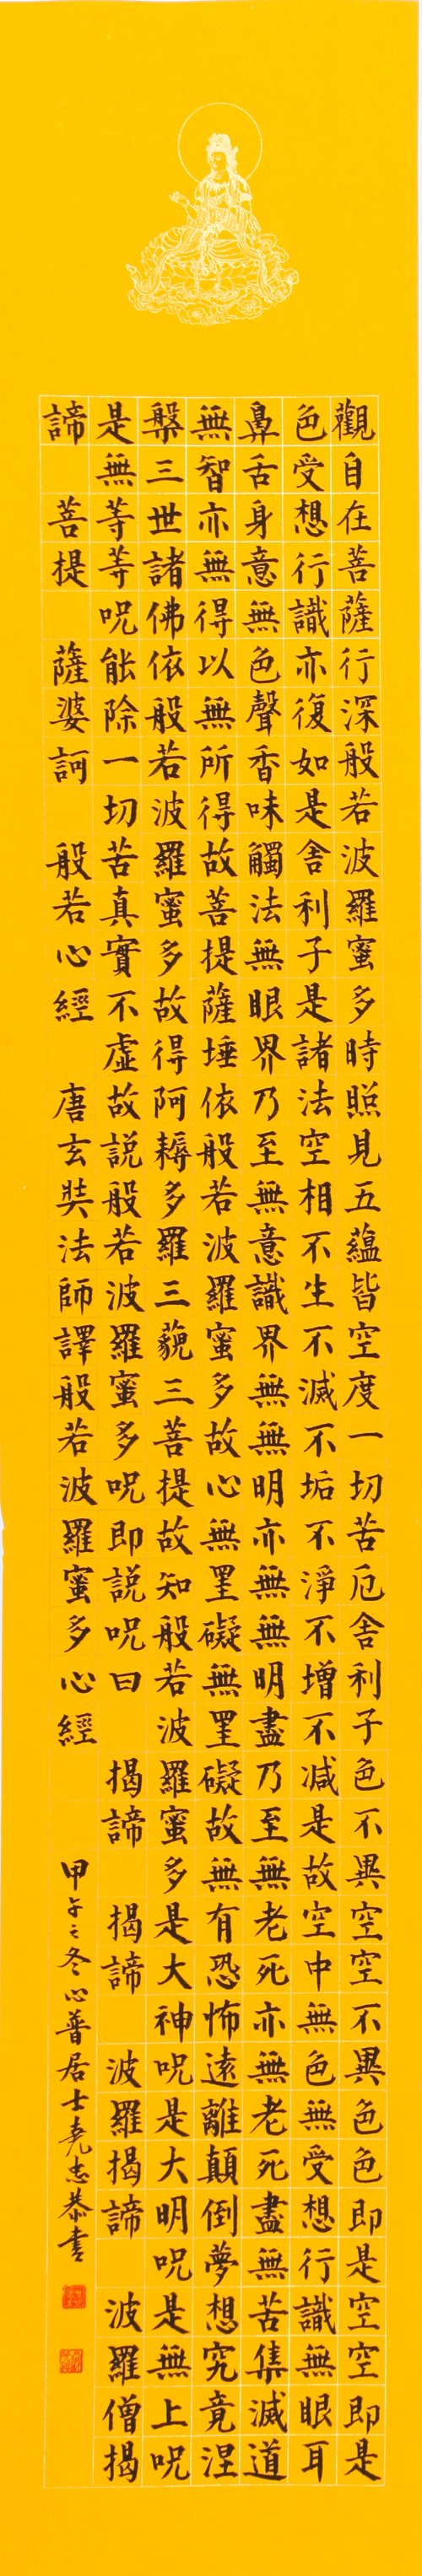 觀自在菩薩行深般若波羅蜜多時照見五蘊皆空度一切苦厄舍利子色不異空空不異色色即是空空即是
色受想行識亦復如是舍利子是諸法空相不生不滅不垢不淨不增不減是故空中無色無受想行識無眼耳
鼻舌身意無色聲香味觸法無眼界乃至無意識界無無明亦無無明盡乃至無老死亦無老死盡無苦集滅道
無智亦無得以無所得故菩提薩埵依般若波羅蜜多故心無罣礙無罣礙故無有恐怖遠離顛倒夢想究竟涅
槃三世諸佛依般若波羅蜜多故得阿耨多羅三藐三菩提故知般若波羅蜜多是大神呪是大明呪是無上呪
是無等等呪能除一切苦真實不虛故説般若波羅蜜多呪即説呪曰 揭諦 揭諦 波羅揭諦 波羅僧揭
諦 菩提 薩婆訶 般若心經 唐玄奘法師譯般若波羅蜜多心經 甲午之冬心普居士堯志恭書